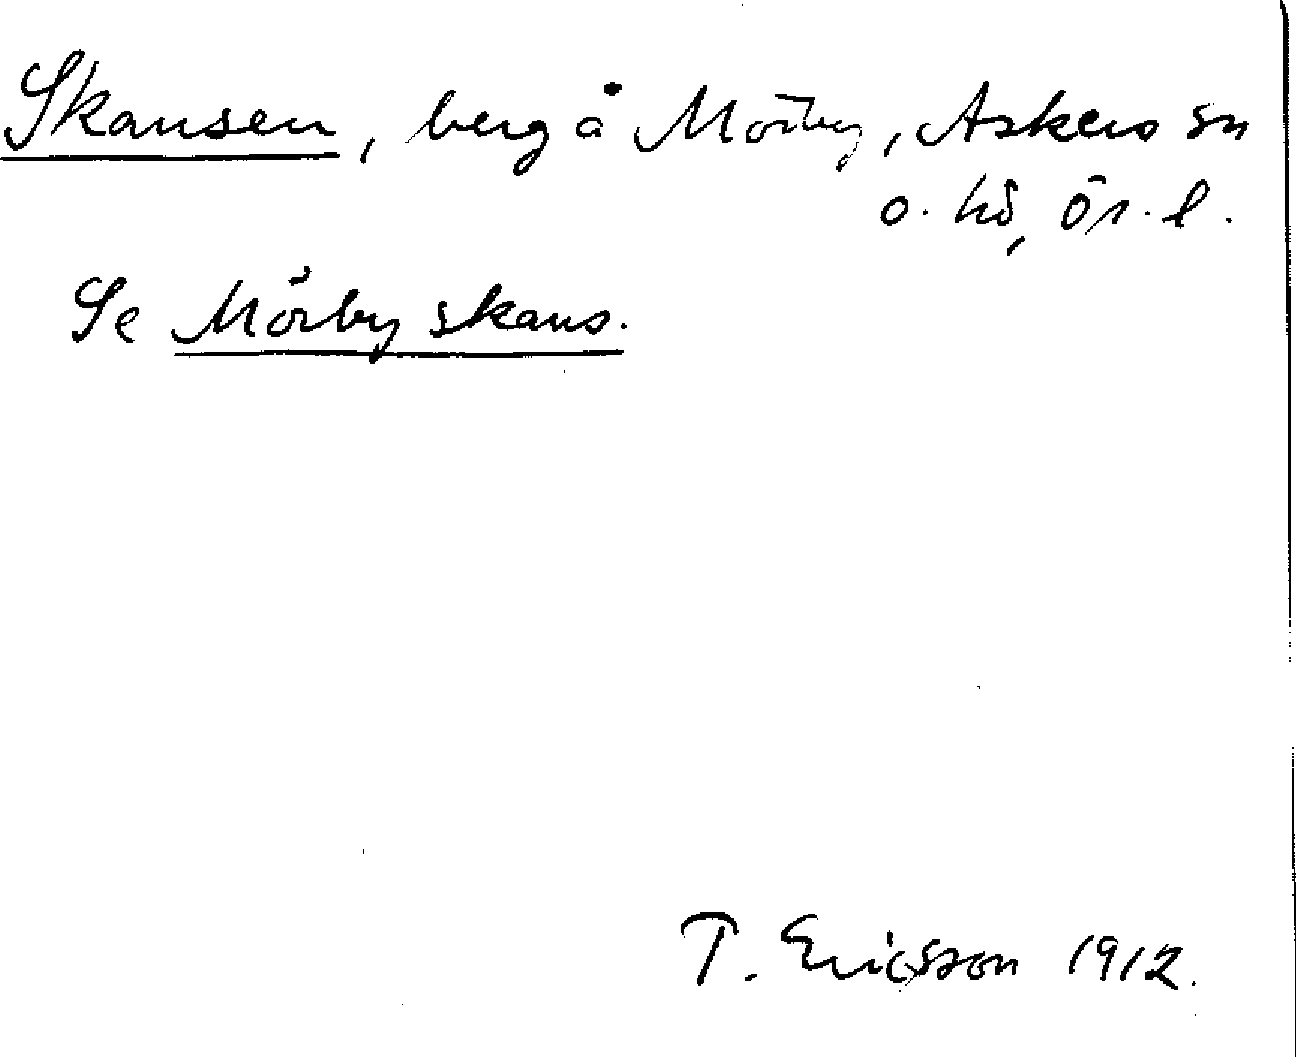 Skansen, berg å Mörby, Askers sn
o. hd, Ör. l.
Se Mörby skans.
T. Ericsson 1912.